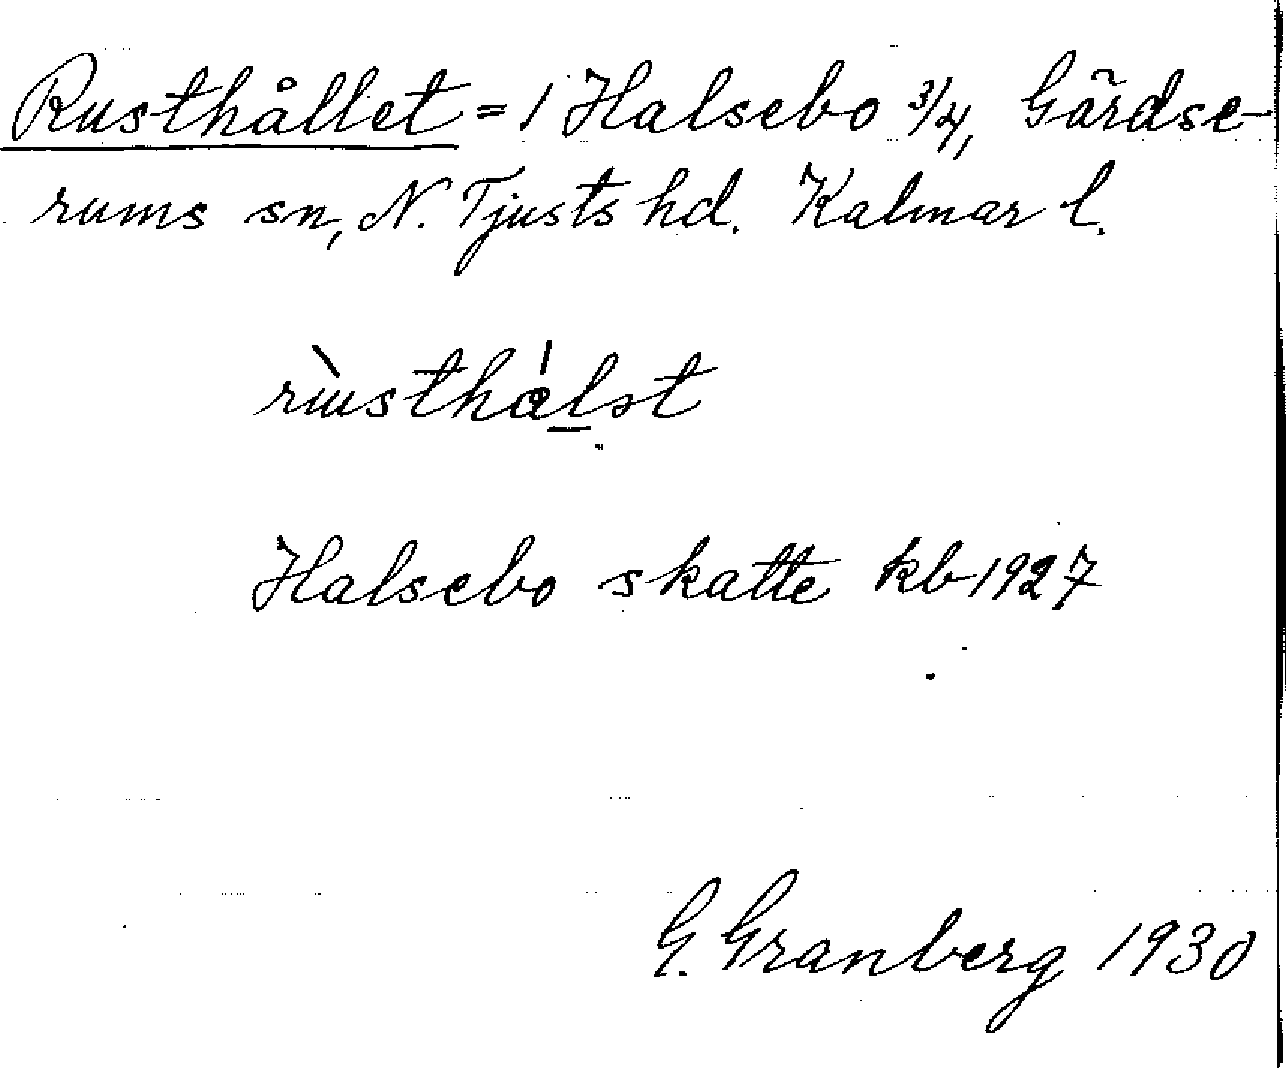 Rusthållet = 1 Halsebo 3/4, Gärdse-
rums sn, N. Tjusts hd. Kalmar l.
rùsthålət
Halsebo skatte kb 1927
G. Granberg 1930